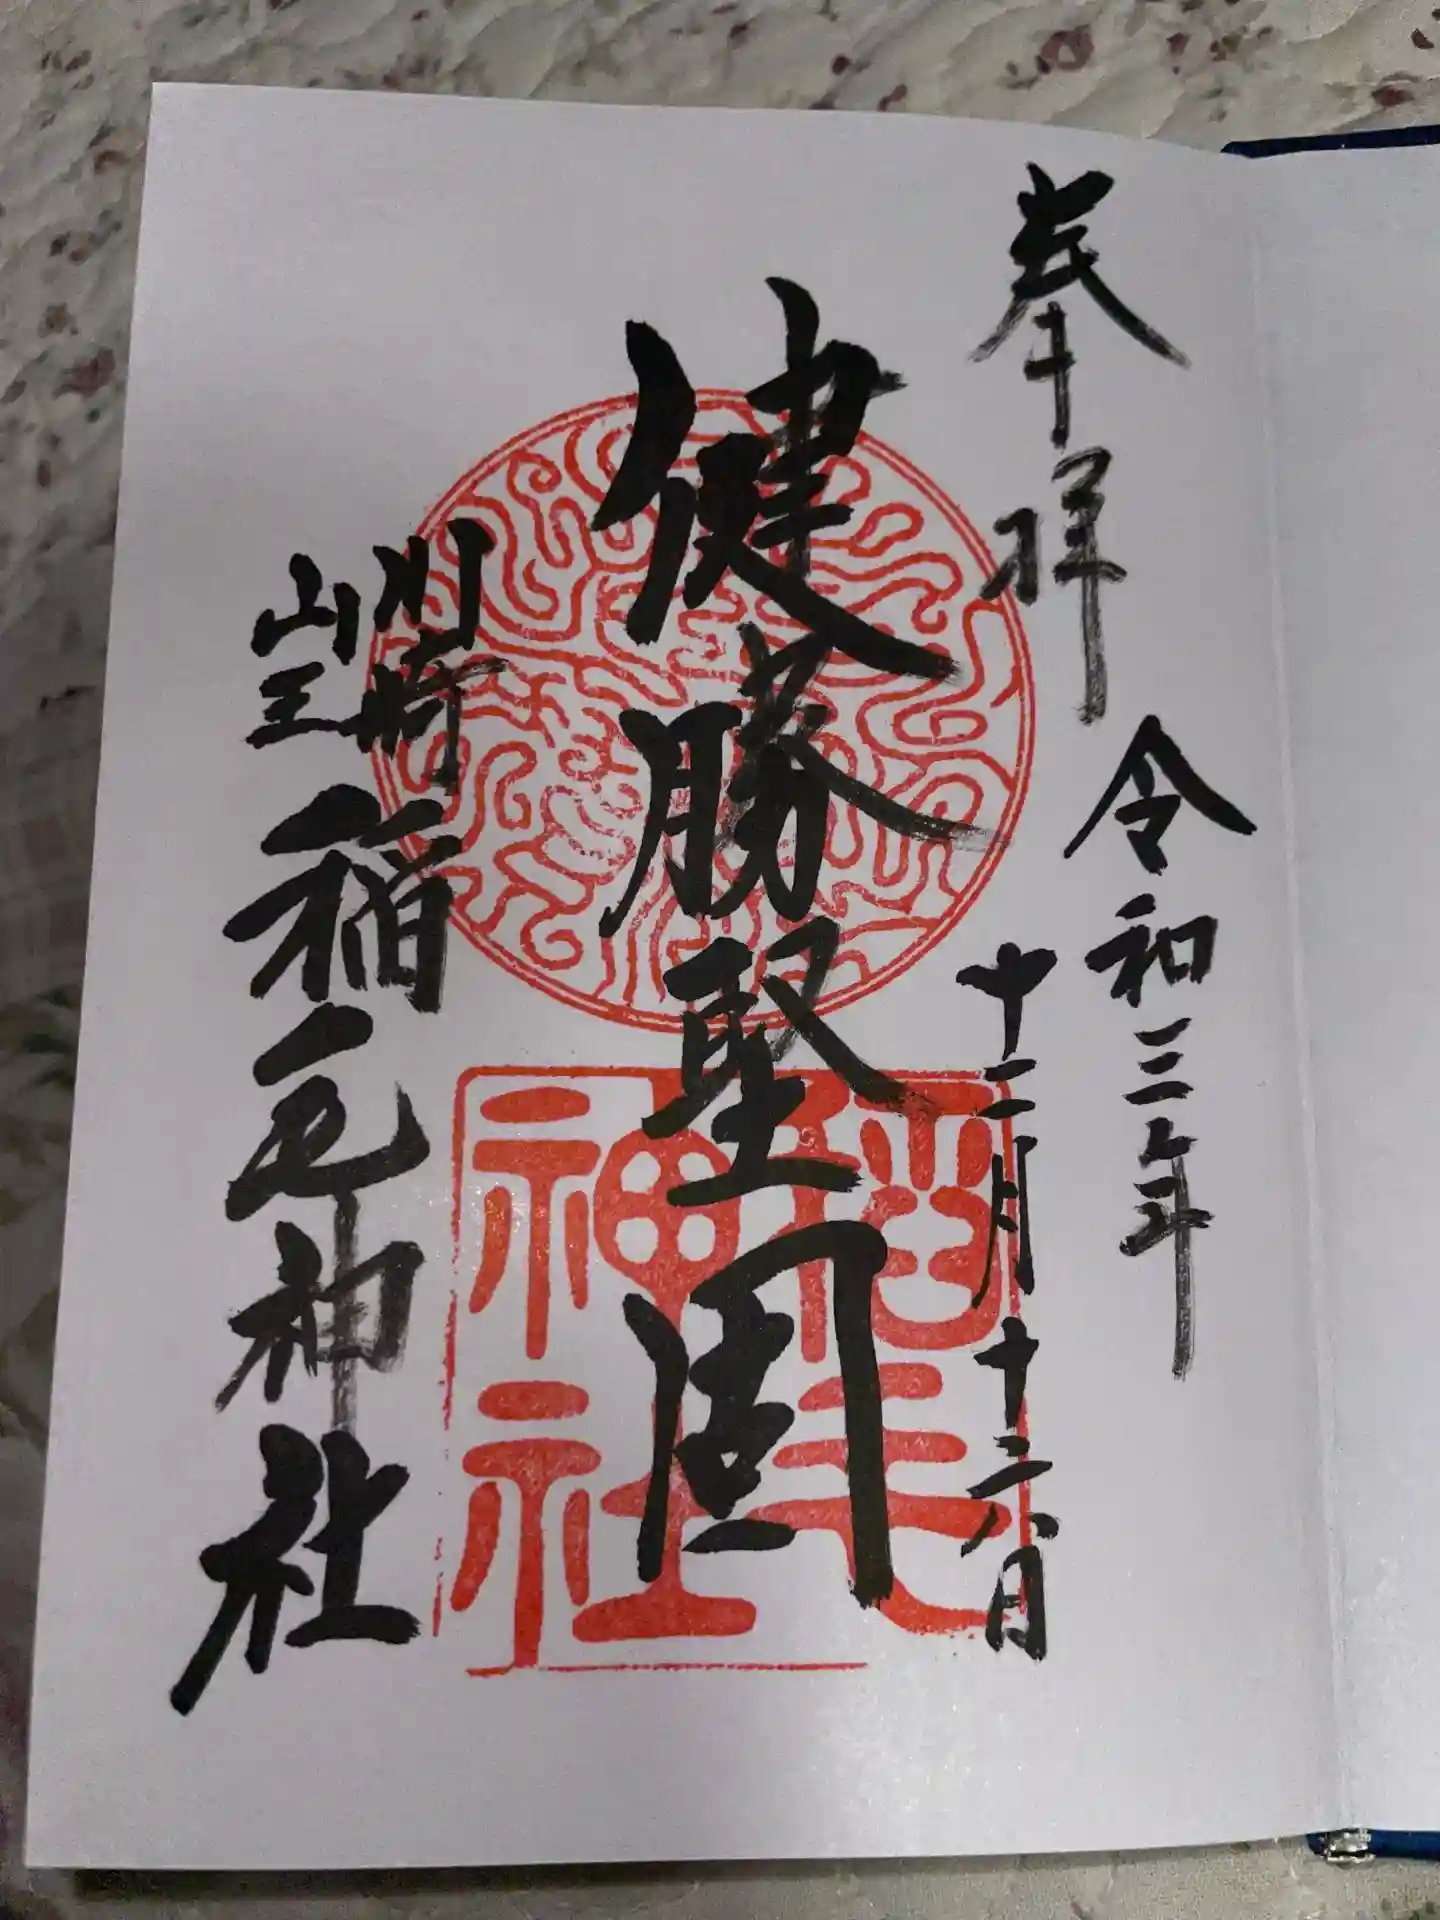 奉拝
令和三年
十二月十二八日
健勝堅固
川崎
山王
稲毛神社
稲毛
神社